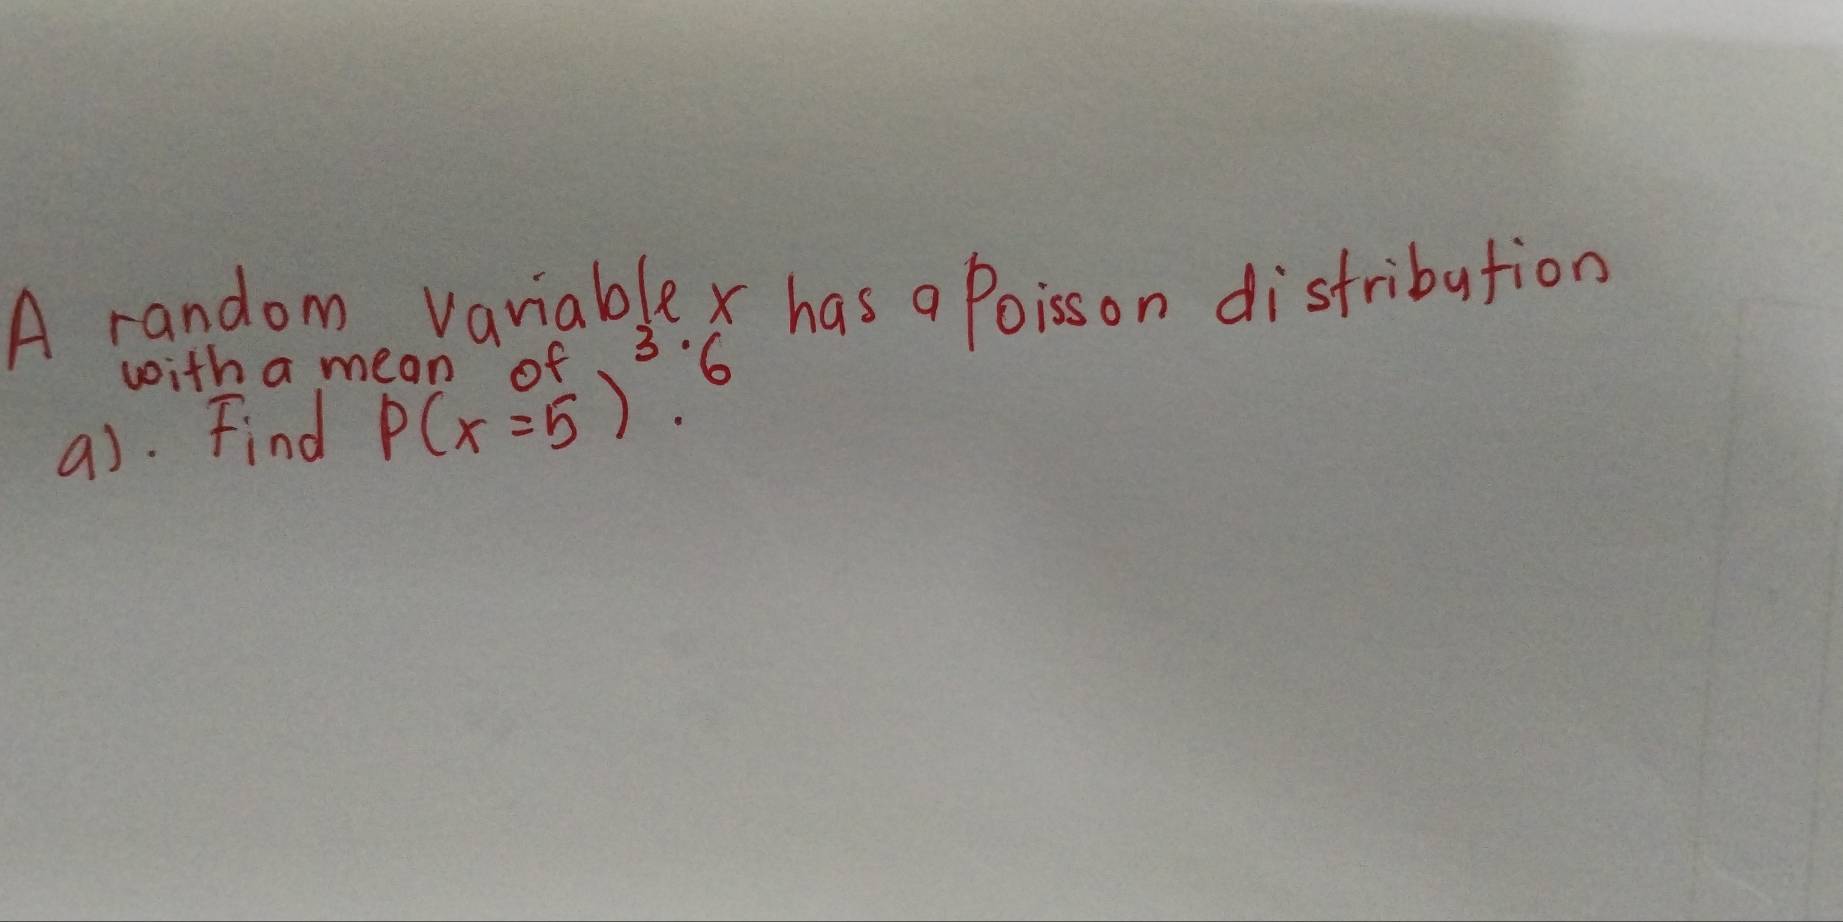 A random variable x has a Poisson distribution
with a mean of 3.6
a). Find P(x=5).